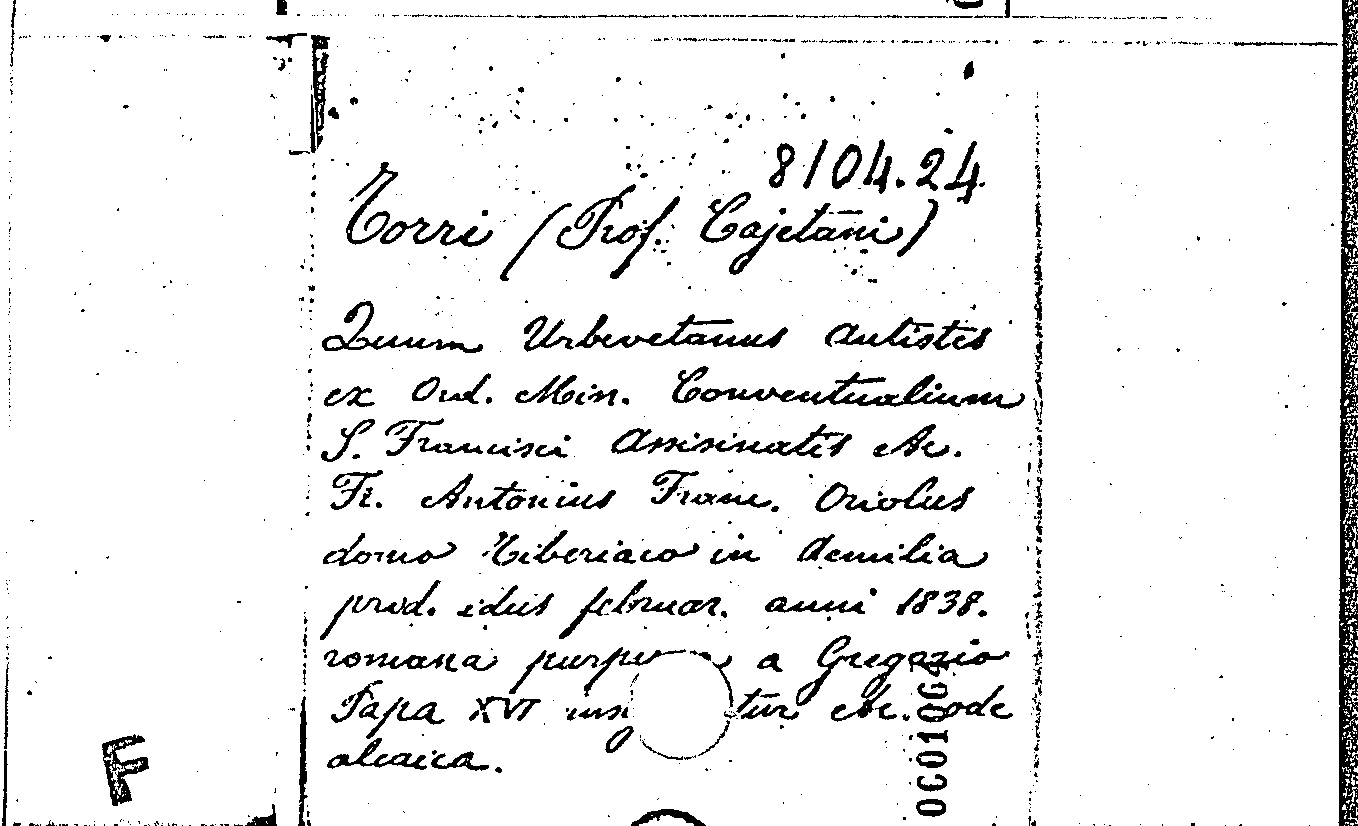 8104.24
Torri (Prof. Cajetani)
Quum Urbevetanus Antistes
ex Ord. Min. Conventualium
S. Francisci Assisinatis &c.
Fr. Antonius Franc. Oriolus
domo Tiberiaco in Aemilia
prid. idus februar. anni 1838.
romana a Gregorio
Papa XVI &c. ode
alcaica.
F